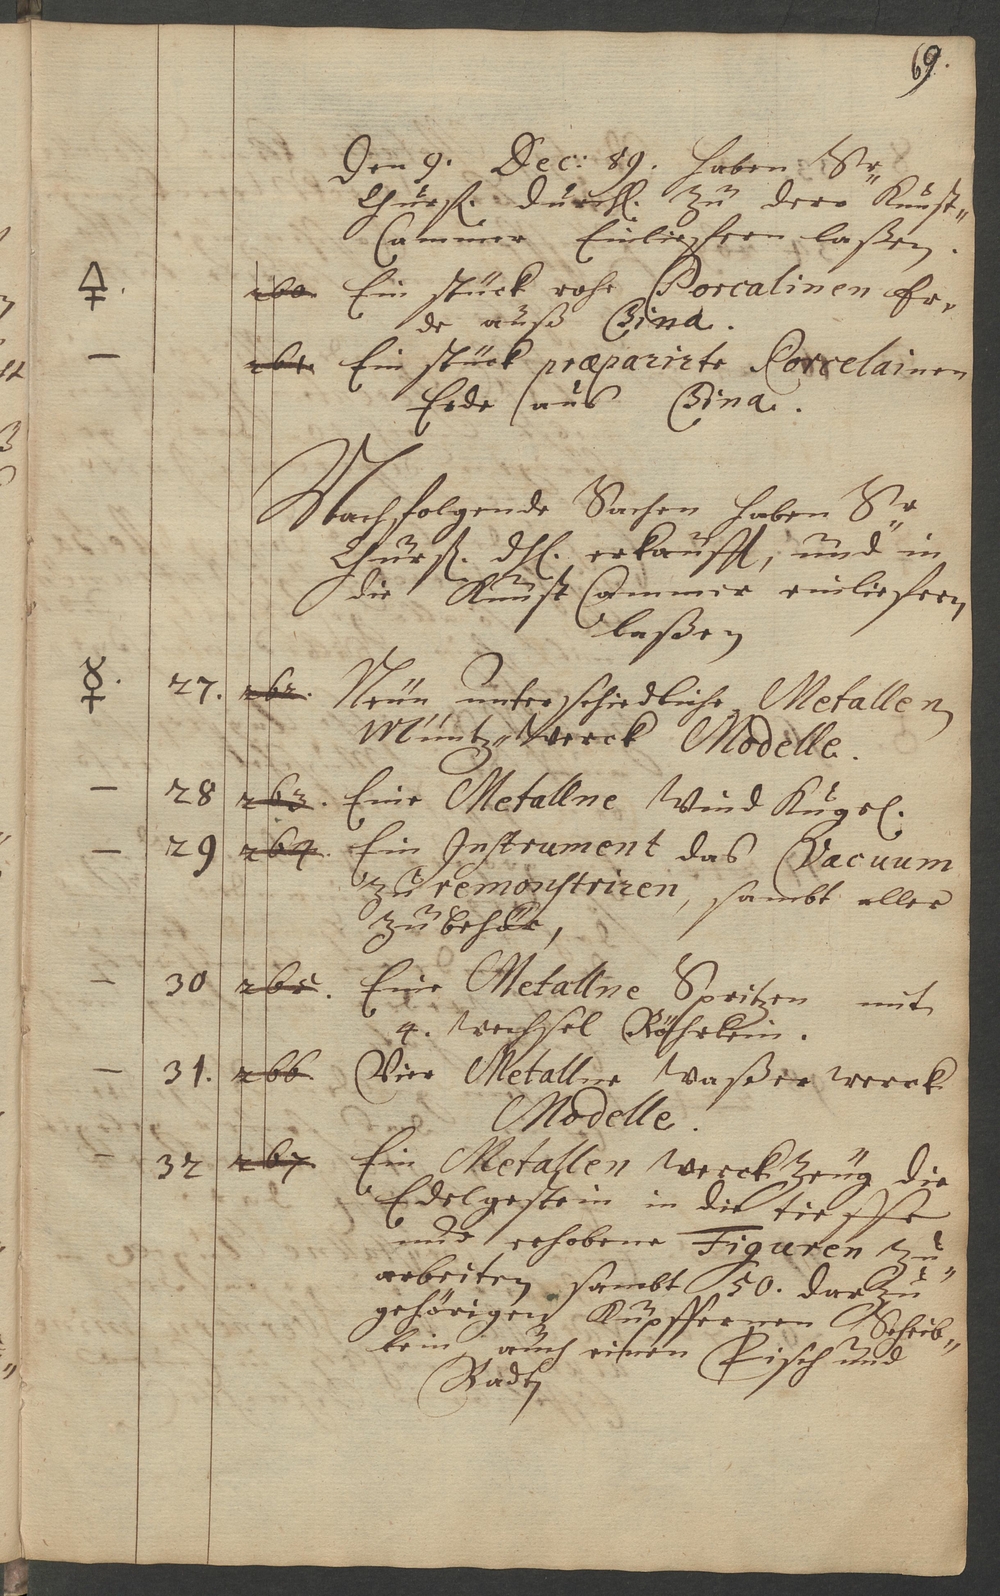 69.
Den 9. Dec: 89. haben Sr.
Churfl. Durchl. zu dero Kunst-
Cammer Einliefern laßen.
260. Ein stück rohe Porcalinen Er-
de auß China.
— 261. Ein stück præparirte Porcelainen
Erde aus China.
Nachfolgende Sachen haben Sr
Churfl. dhl. erkaufft, und in
die Kunst Cammer einliefern
laßen
☿. 27. 262. Neün unterschiedliche Metallen
Müntz-Werck Modelle.
— 28 263. Eine Metallne Wind Kugel.
— 29 264. Ein Instrument das Vacuum
zu remonstriren, sambt aller
zubehör,
— 30 265. Eine Metallne Spritzen mit
4. Wechsel Röhrlein.
— 31. 266. Vier Metallne Waßerwerck
Modelle.
— 32 267. Ein Metallen Werckzeug die
Edelgestein in die tieffe
und erhobene Figuren zu
arbeiten sambt 50. darzu
gehörigen Kupffernen Scheib-
lein, auch einen Tisch und
Radt